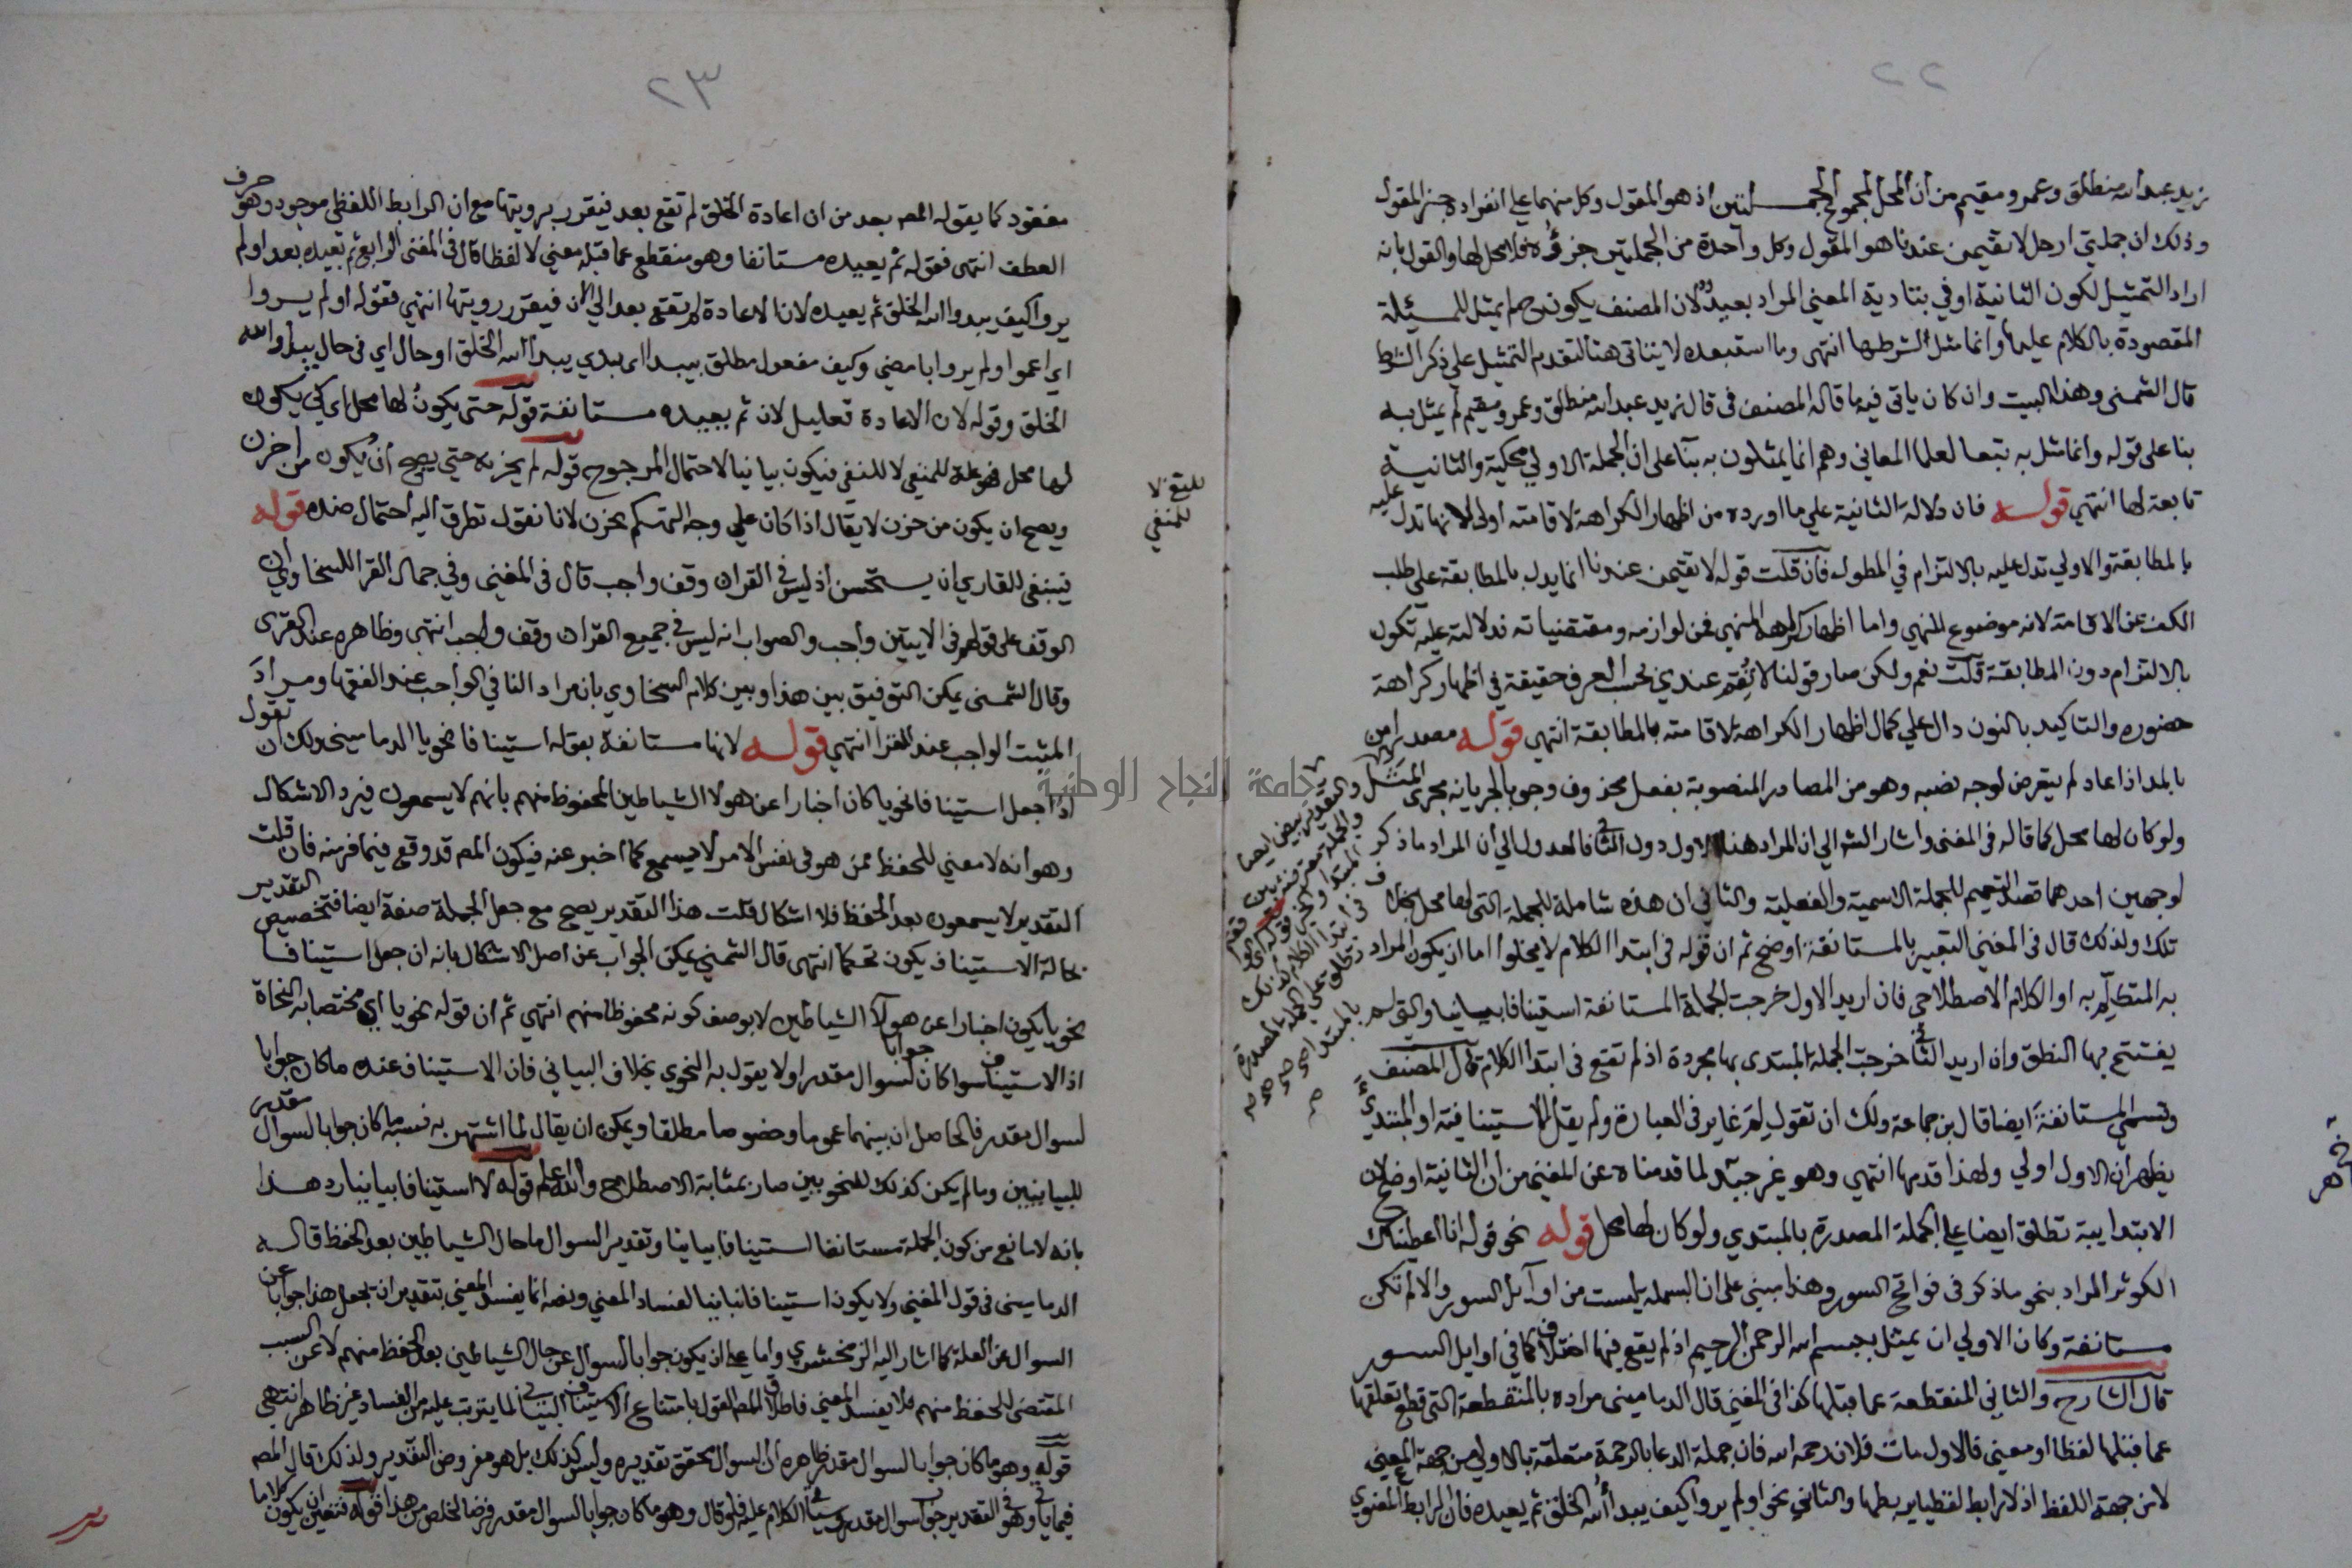 ٢٢
زيد عبد الله منطلق وعمرو مقيم من أن المحل لمجموع الجملتين اذ هو المقول وكل منهما علي انفراده جزء المقول
وذلك ان جملتي ارحل لا تقيمن عندنا هو المقول وكل واحدة من الجملتين جزؤه فلا محل لها والقول بانه
اراد التمثيل لكون الثانية اوفي بتادية المعني المراد بعيد لان المصنف يكون ح لم يمثل للمسئلة
المقصودة بالكلام عليها وانما مثل لشرطها انتهى وما استبعده لا يتاتى هنا لتقدم التمثيل على ذكر الشرط
قال الشمنى وهذا البيت وان كان ياتى فيه ما قاله المصنف فى قال زيد عبد الله منطلق وعمرو مقيم لم يمثل به
بنا على قوله وانما مثل به تبعا لعلما المعاني وهم انما يمثلون به بنآ على ان الجملة الاولي محكية والثانية
تابعة لها انتهي قوله فان دلالة الثانية علي ما اورده من اظهار الكراهة لاقامته اولى لانها تدل عليه
بالمطابقة والاولي تدل عليه بالالتزام في المطول فان قلت قوله لا تقيمن عندنا انما يدل بالمطابقة على طلب
الكف عن الاقامة لانه موضوع للنهي واما اظهار كراهة المنهي فمن لوازمه ومقتضياته فدلالته عليه تكون
بالالتزام دون المطابقة قلت نعم ولكن صار قولنا لا تقم عندي بحسب العرف حقيقة في اظهار كراهة
حضوره والتاكيد بالنون دال علي كمال اظهار الكراهة لاقامته بالمطابقة انتهى قوله مصدر امن
بالمد اذا عاد لم يتعرض لوجه نصبه وهو من المصادر المنصوبة بفعل محذوف وجوبا لجريانه مجرى المثل
ولو كان لها محل كما قاله فى المغنى واشار الش الي ان المراد هنا الاول دون الثاني فالعدول الي أن المراد ما ذكر
لوجهين احدهما قصد التعميم للجملة الاسمية والفعلية والثانى ان هذه شاملة للجملة التى لها محل بخلاف
تلك ولذلك قال فى المغني التعبير بالمستانفة اوضح ثم ان قوله فى ابتدا الكلام لا يخلوا اما ان يكون المراد
به المتكلم به او الكلام الاصطلاحي فان اريد الاول خرجت الجملة المستانفة استينافا بيانيا والتى لم
يفتتح بها النطق وان اريد الثاني خرجت الجملة المبتدى بها مجردة اذ لم تقع فى ابتدا الكلام قال المصنف
وتسمي المستانفة ايضا قال بن جماعة ولك ان تقول لم غاير فى العبارة ولم يقل الاستينافية او المبتدي
يظهر ان الاول اولي ولهذا قدمها انتهي وهو غير جيد لما قدمناه عن المغني من ان الثانية اوضح لان
الابتدايية تطلق ايضا علي الجملة المصدرة بالمبتدي ولو كان لها محل قوله نحو قوله انا اعطيناك
الكوثر المراد بنحو ما ذكر فى فواتح السور وهذا مبني على ان البسملة ليست من اوآيل السور والا لم تكن
مستانفة وكان الاولي ان يمثل ببسم الله الرحمن الرحيم اذ لم يقع فيها اختلاف كما في اوايل السور
قال الشارح والثاني المنقطعة عما قبلها كذا فى المغني قال الدماميني مراده بالمنقطعة التى قطع تعلقها
عما قبلها لفظا او معني فالاول مات فلان رحمه الله فان جملة الدعا بالرحمة متعلقة بالاولي من جهة المعني
لا من جهة اللفظ اذ لا رابط لفظيا يربطها والثاني نحو اولم يروا كيف يبدأ الله الخلق ثم يعيده فان الرابط المعنوي
٢٣
مفقود كما يقوله المص بعد من ان اعادة الخلق لم تقع بعد فيتقرر برويتها مع ان الرابط اللفظي موجود وهو حرف
العطف انتهى فقوله ثم يعيده مستانفا وهو منقطع عما قبله معني لا لفظا قال فى المغني الرابع ثم يعيده بعد اولم
يروا كيف يبدوا الله الخلق ثم يعيده لان الاعادة لم تقع بعد الي الان فيقرر رويتها انتهي فقوله اولم يروا
اي اعموا ولم يروا بامضي وكيف مفعول مطلق يبدا اي بدي يبدا الله الخلق او حال اي في حال يبدوا الله
الخلق وقوله لان الاعادة تعليل لان ثم يعيده مستانفة قوله حتى يكون لها محل اى كي يكون
لها محل فهو علة للمنفي لا للنفى فيكون بيانيا لاحتمال المرجوح قوله لم يحزنه حتي يصح أن يكون من أحزن
ويصح ان يكون من حزن لا يقال اذا كان علي وجه التهكم يحزن لانا نقول تطرق اليه احتمال ضده قوله
فينبغى للقاري ان يستحسن اذ ليس فى القران وقف واجب قال فى المغنى وفي جمال القرا للسخاوي ان
الوقف على قولهم فى الايتين واجب والصواب انه ليس فى جميع القران وقف واجب انتهى وظاهره عند القرى
وقال الشمنى يمكن التوفيق بين هذا وبين كلام السخاوي بان مراد النافي الواجب عند الفقها ومراد
المثبت الواجب عند القرا انتهي قوله لانها مستانفة بقوله استينافا نحويا الدماميني ولك ان تقول
اذا جعل استينافا نحويا كان اخبارا عن هولا الشياطين المحفوظ منهم بانهم لا يسمعون فيرد الاشكال
وهو انه لا معني للحفظ ممن هو فى نفس الامر لا يسمع كما اخبر عنه فيكون المص قد وقع فيما فر منه فان قلت
التقدير لا يسمعون بعد الحفظ فلا اشكال قلت هذا التقدير يصح مع جعل الجملة صفة ايضا فتخصيص التقدير
بحالة الاستيناف يكون تحكما انتهى قال الشمني يمكن الجواب عن اصل الاشكال بانه ان جعل استينافا
نحويا يكون اخبارا عن هولا الشياطين لا بوصف كونه محفوظا منهم انتهي ثم ان قوله نحويا اي مختصا به النحاة
اذ الاستيناف سوا كان جوابا لسوال مقدر او لا يقول به النحوي بخلاف البياني فان الاستيناف عنده ما كان جوابا
لسوال مقدر فالحاصل ان بينهما عموما وخصوصا مطلقا ويمكن ان يقال لما اشتهر به نسبة ما كان جوابا لسوال مقدر
للبيانيين وما لم يكن كذلك للنحويين صار بمثابة الاصطلاح والله اعلم قوله لا استينافا بيانيا رد هذا
بانه لا مانع من كون الجملة مستانفا استينافا بيانيا وتقدير السوال ما حال الشياطين بعد الحفظ قاله
الدماميني فى قول المغني ولا يكون استينافا بيانيا لفساد المعني ونصه انما يفسد المعني بتقدير ان تجعل هذا جوابا عن
السوال عن العلة كما اشار اليه الزمخشري واما علي ان يكون جوابا لسوال عن حال الشياطين بعد الحفظ منهم لا عن السبب
المقتضى للحفظ منهم فلا يفسد المعني فاطلاق المص القول بامتناع الاستيناف البياني لما يترتب عليه من الفساد غير ظاهر انتهي
قوله وهو ما كان جوابا لسوال مقدر ظاهره ان السوال محقق تقديره وليس كذلك بل هو مفروض التقدير ولذلك قال المص
فيما ياتي وهو فى التقدير جواب سوال مقدر وسياتي الكلام عليه فلو قال وهو ما كان جوابا لسوال مقدر فرضا لخلص من هذا قوله فتعين ان يكون كلاما
للنفي لا
للمنفي
جامعة النجاح الوطنية